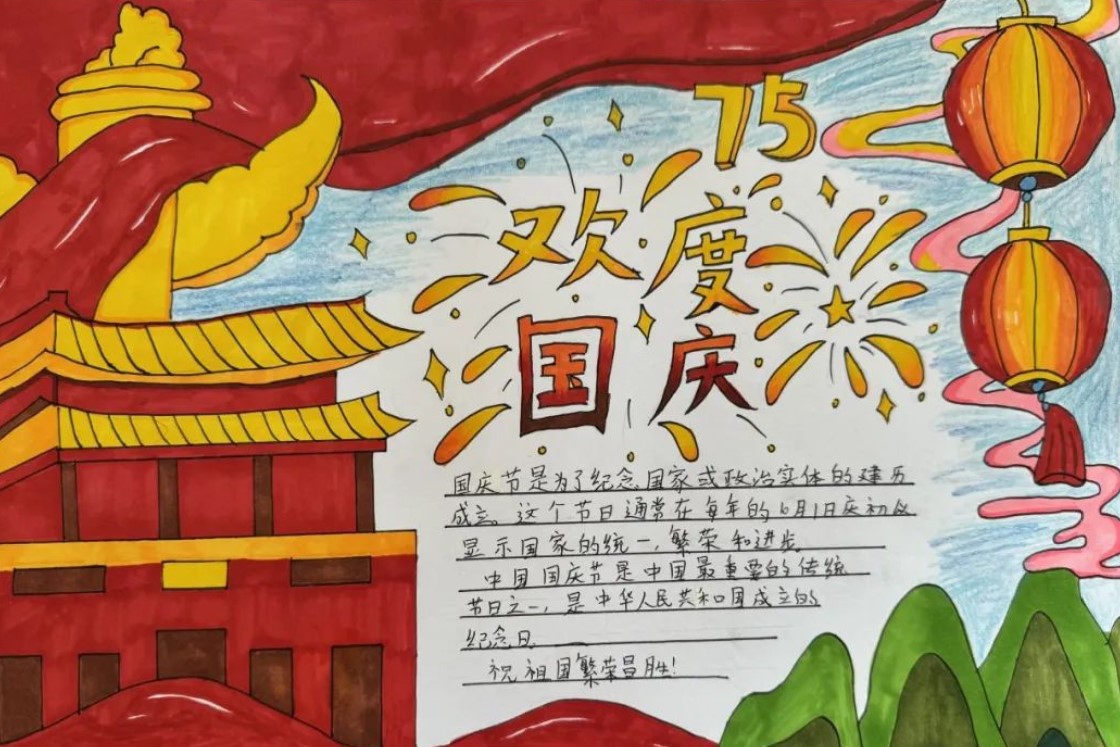 75
欢度
国庆
国庆节是为了纪念国家或政治实体的建历
成立。这个节日通常在每年的10月1日庆初以
显示国家的统一,繁荣和进步
中国国庆节是中国最重要的传统
节日之一,是中华人民共和国成立的
纪念日
祝祖国繁荣昌胜!